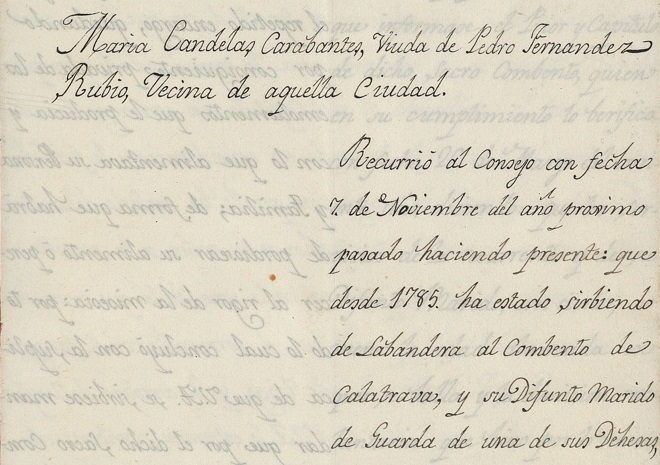 Maria Candelas Carabantes, Viuda de Pedro Fernandez
Rubio, Vecina de aquella Ciudad.
Recurrió al Consejo con fecha
7. de Noviembre del año proximo
pasado haciendo presente: que
desde 1785. ha estado sirbiendo
de Labandera al Combento de
Calatrava, y su Difunto Marido
de Guarda de una de sus Dehesas,